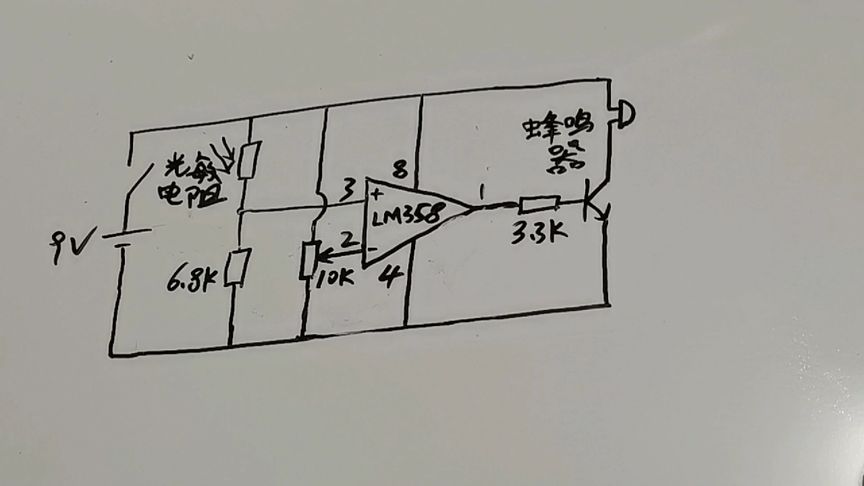 蜂鸣
器
光敏
电阻
8
3
+
1
LM358
9V
2
-
3.3K
6.8K
10K
4